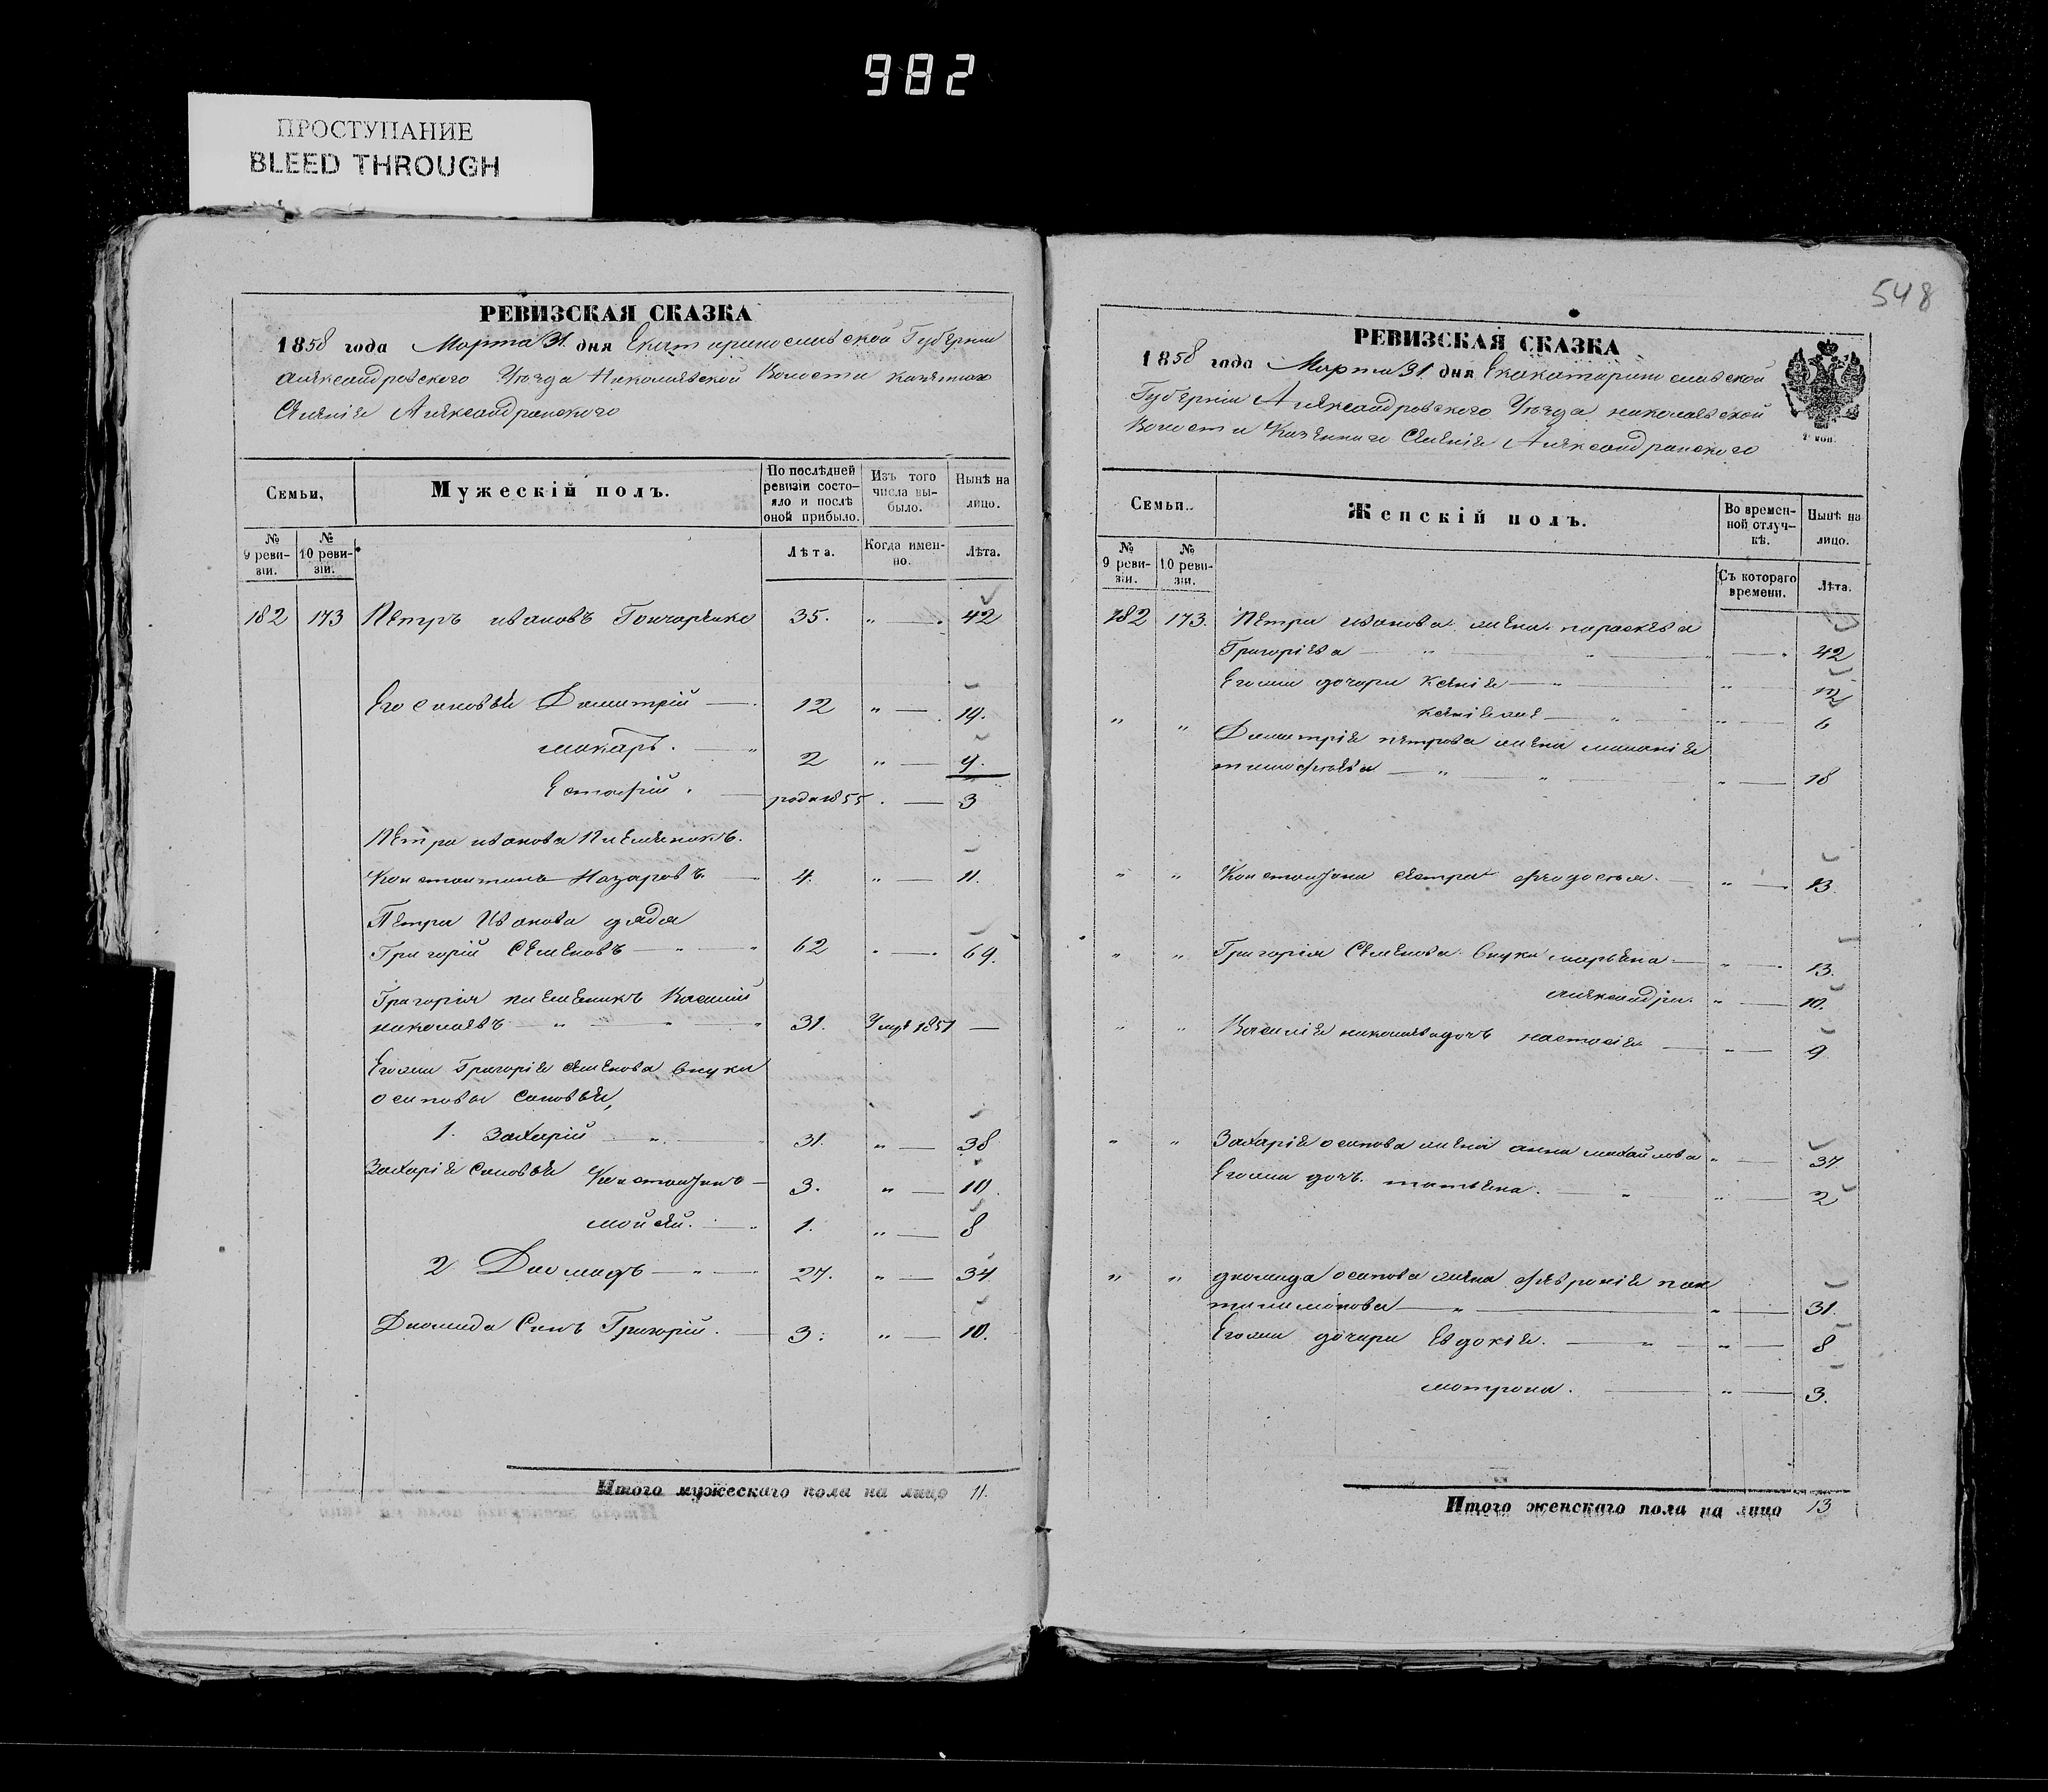 982
ПРОСТУПАНИЕ
BLEED THROUGH
548
РЕВИЗСКАЯ СКАЗКА
1858 года Марта 31 дня Екатеринославской Губернии
Александровского Уезда Николаевской Волости казенного
Селения Александровского
Семьи,
Мужескій полъ.
По послѣдней ревизіи состояло и послѣ оной прибыло.
Изъ того числа выбыло.
Нынѣ на лицо.
№ 9 ревизіи.
№ 10 ревизіи.
Лѣта.
Когда именно.
Лѣта.
182 173 Петръ ивановъ Гончаренко 35. „ — 42
Его сановья Димитрій — 12 „ — 19.
макаръ. — „ 2 „ — 9.
Естафій. — рода 1855 . — 3
Петра иванова Племеникъ.
Константинъ Назаровъ. — 4. „ — 11.
Петра Иванова дядя
Григорій Семеновъ — „ — „ 62 „ — 69.
Григорія племеникъ Василій
николаевъ — „ — „ — „ 31. Умре 1851 —
Егоже Григорія Семенова внуки
осипова сановья,
1. Захарій — „ — „ 31. „ — 38
Захарія сановья Констанзинъ — 3. „ — 10.
мойсей. — „ 1. „ — 8
2. Диомидъ — „ — „ 27. „ — 34
Диомида Санъ Григорій. — 3. „ — 10.
Итого мужескаго пола на лицо 11.
РЕВИЗСКАЯ СКАЗКА
1858 года Марта 31 дня Екакатаринославской
Губерніи Александровского Уезда николаевской
Волости Казеннаго Селенія Александровского
2 коп.
Семьи.
Женскій полъ.
Во временной отлучкѣ.
Нынѣ на лицо.
№ 9 ревизіи.
№ 10 ревизіи.
Съ котораго времени.
Лѣта.
182 173. Петра иванова жена параскева
Григоріева — „ — „ — 42
Егоже дочари Ксенія — „ „ — 12
— „ „ — 6
„ „ Димитрія петрова жена маланія
тимофеева — „ — „ „ — 18
„ „ Констанзина сестра феодосья. — „ — 13.
„ „ Григорія Семенова внуки марьяна — „ — 13.
александра. „ — 10.
„ „ Василія николаева дочъ настасія — „ — 9
„ „ Захарія осипова жена анна михайлова „ — 37.
Егоже дочъ татьяна. — „ „ — 2
„ „ диомида осипова жена февронія пан
тилимонова — „ — „ — 31.
Егоже дочари Евдокія. — „ — „ — 8
матрона. — „ — 3.
Итого женскаго пола на лицо 13